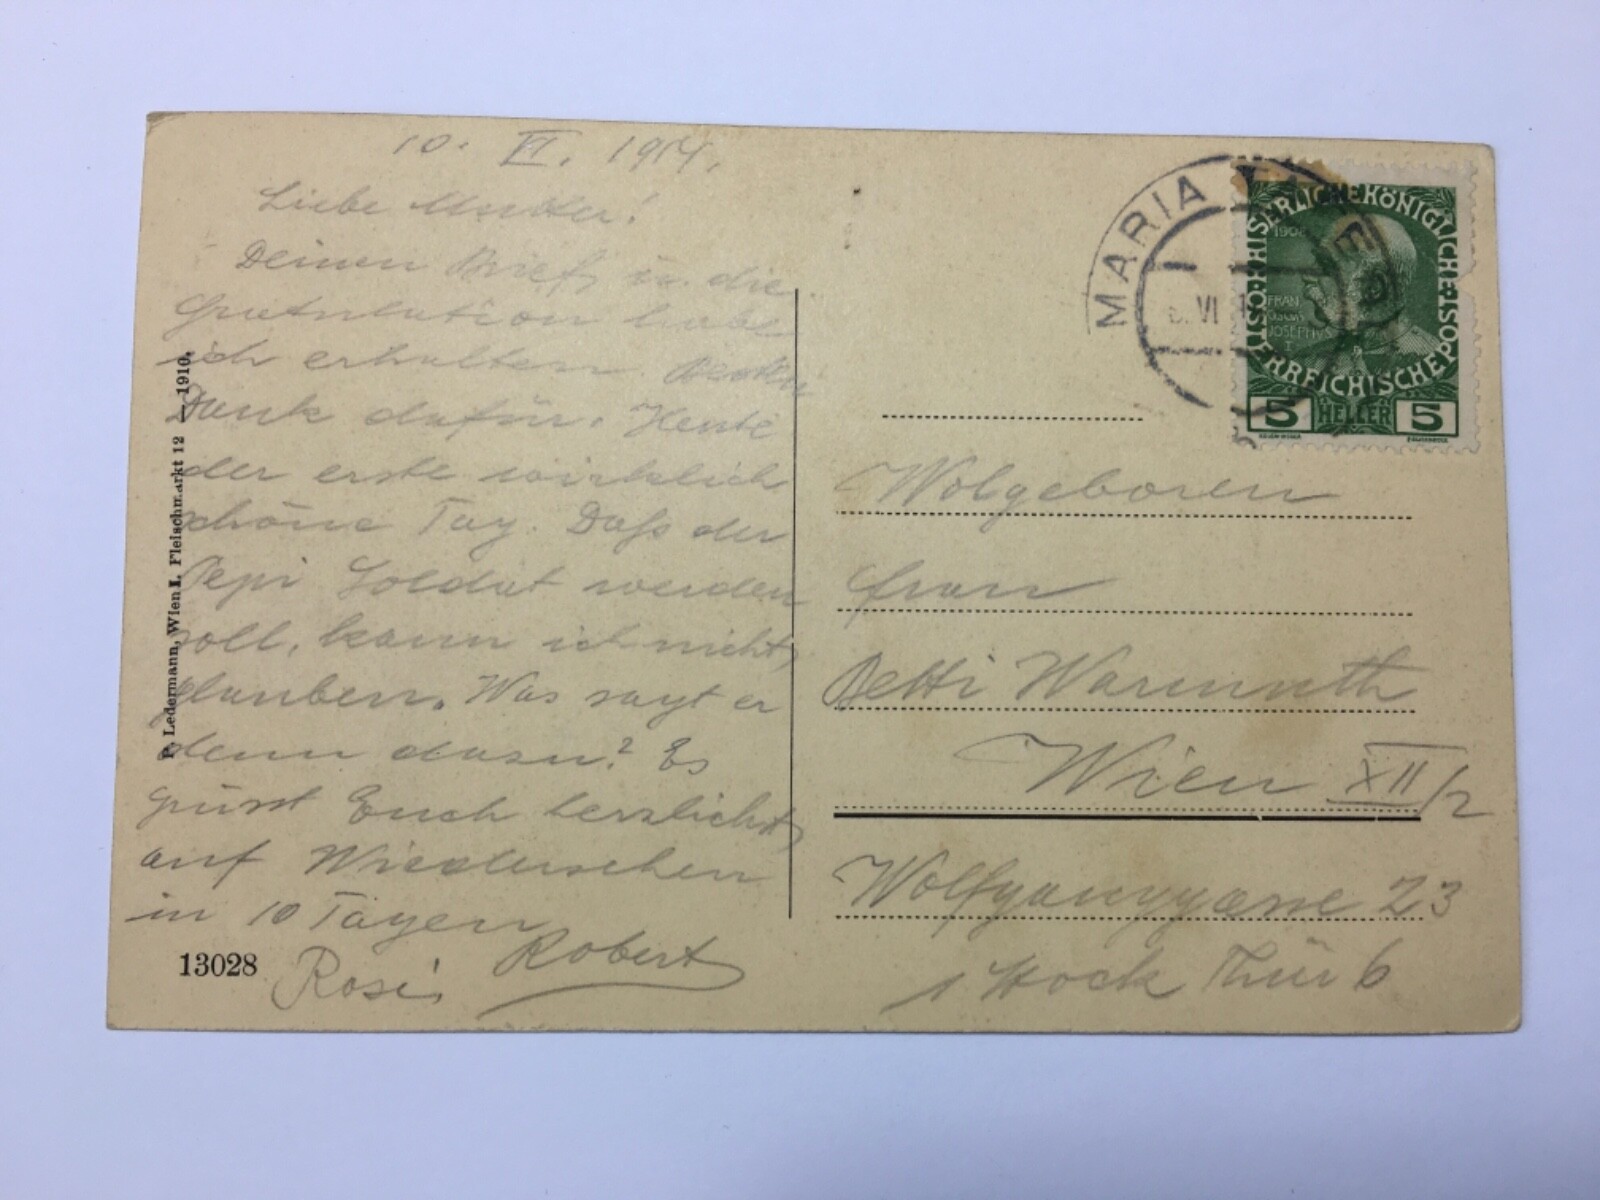 10. VI. 1914.
Liebe Mutter!
Deinen Brief u. die
Gratulation habe
ich erhalten. Besten
Dank dafür. Heute
der erste wirklich
schöne Tag. Daß der
Pepi Soldat werden
soll, kann ich nicht
glauben. Was sagt er
denn dazu? Es
grüsst Euch herzlichst,
auf Wiedersehen
in 10 Tagen
Rosi Robert
13028
P. Ledermann, Wien I, Fleischmarkt 12 — 1910.
MARIA
VI
KAISERLICHE KÖNIGLICHE ÖSTERREICHISCHE POST
1908
FRAN
JOSEPHVS
I
5 HELLER 5
Wolgeboren
Frau
Betti Warmuth
Wien XII/2
Wolfganggasse 23
1 Stock Thür 6